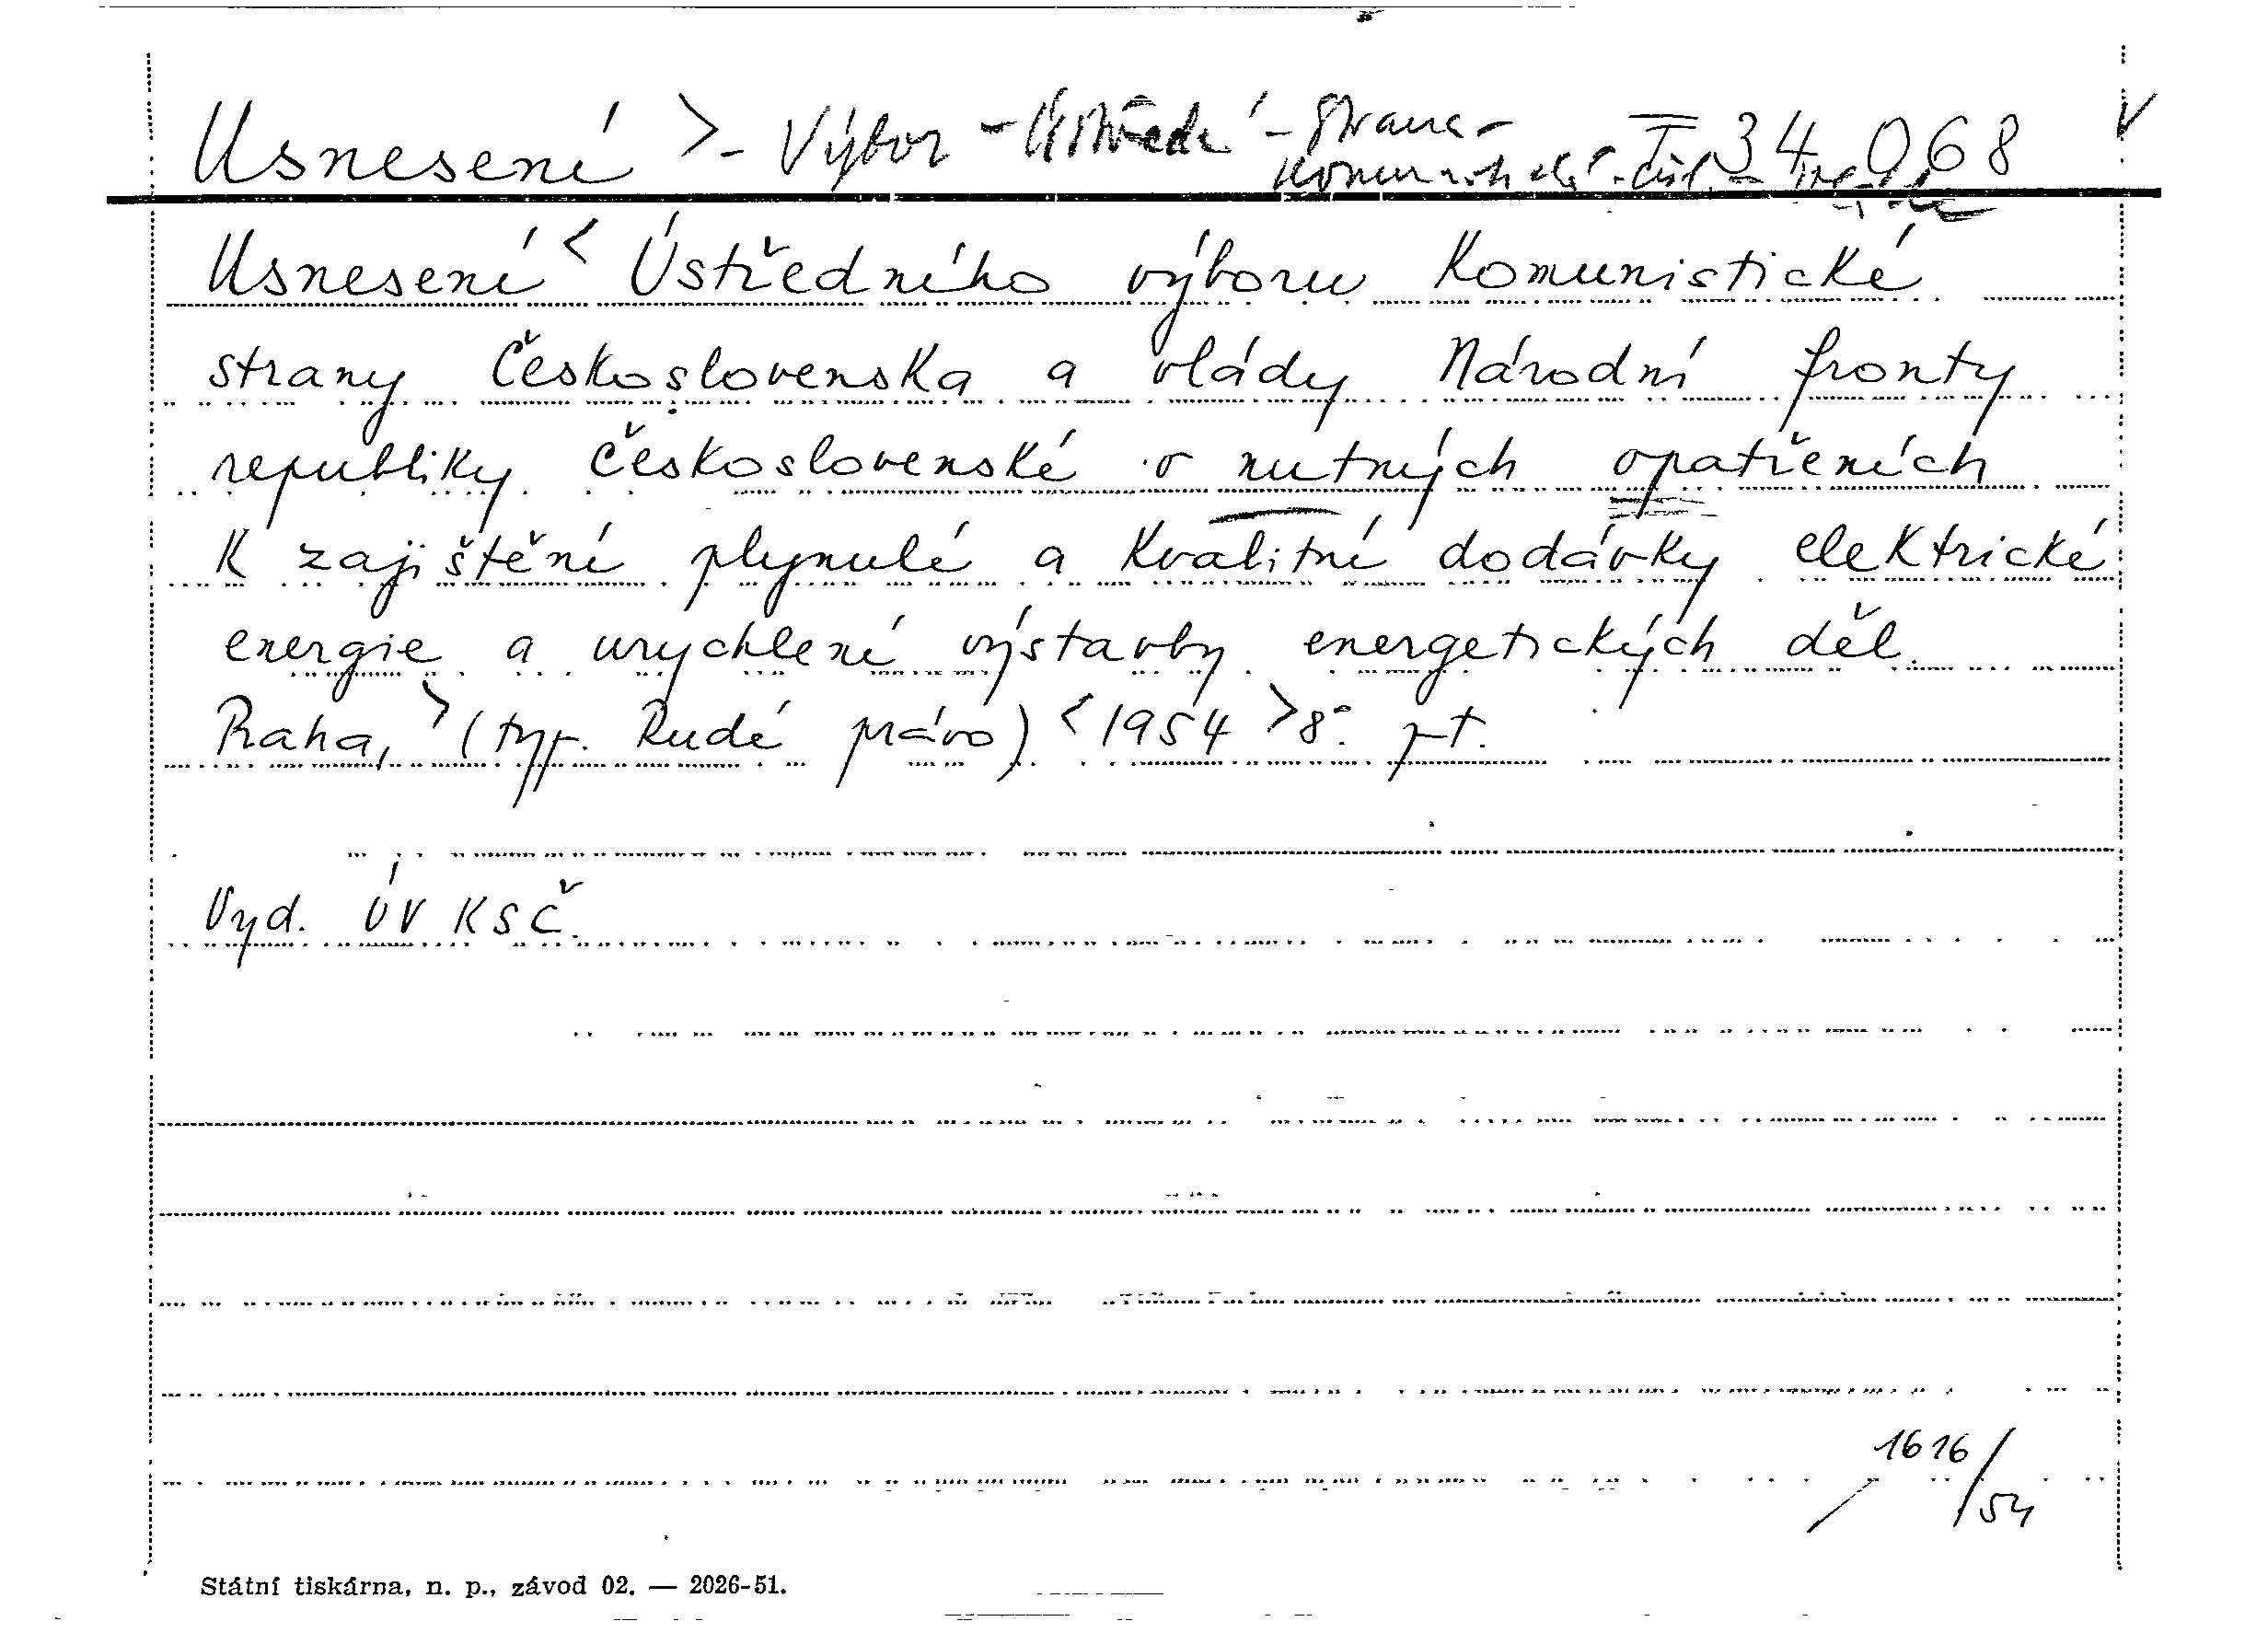 Usnesení > - Výbor - Ústřední - strana - I 34.068 V
Komunistická -
Usnesení < Ústředního výboru Komunistické
strany Československa a vlády Národní fronty
republiky Československé o nutných opatřeních
k zajištění plynulé a kvalitní dodávky elektrické
energie a urychlení výstavby energetických děl.
Praha, > (typ. Rudé právo) < 1954 > 8°.
Vyd. ÚV KSČ.
1616/54
Státní tiskárna, n. p., závod 02. — 2026-51.